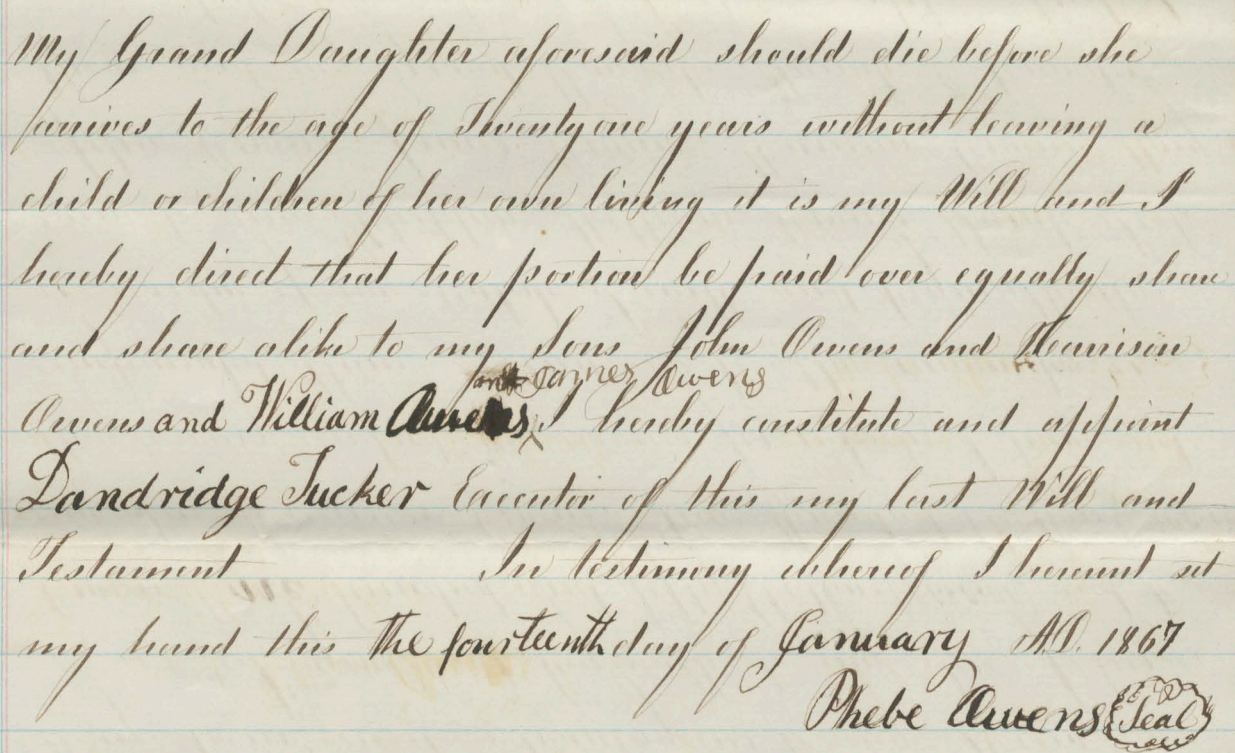 My Grand Daughter aforesaid should die before she
arrives to the age of Twenty one years without leaving a
child or children of her own living it is my Will and I
hereby direct that her portion be paid over equally share
and share alike to my Sons John Owens and Harrison
and James Owens
Owens and William Owens I hereby constitute and appoint
Dandridge Tucker Executor of this my last Will and
Testament In testimony whereof I hereunt set
my hand this the fourteenth day of January A.D. 1867
Phebe Owens Seal